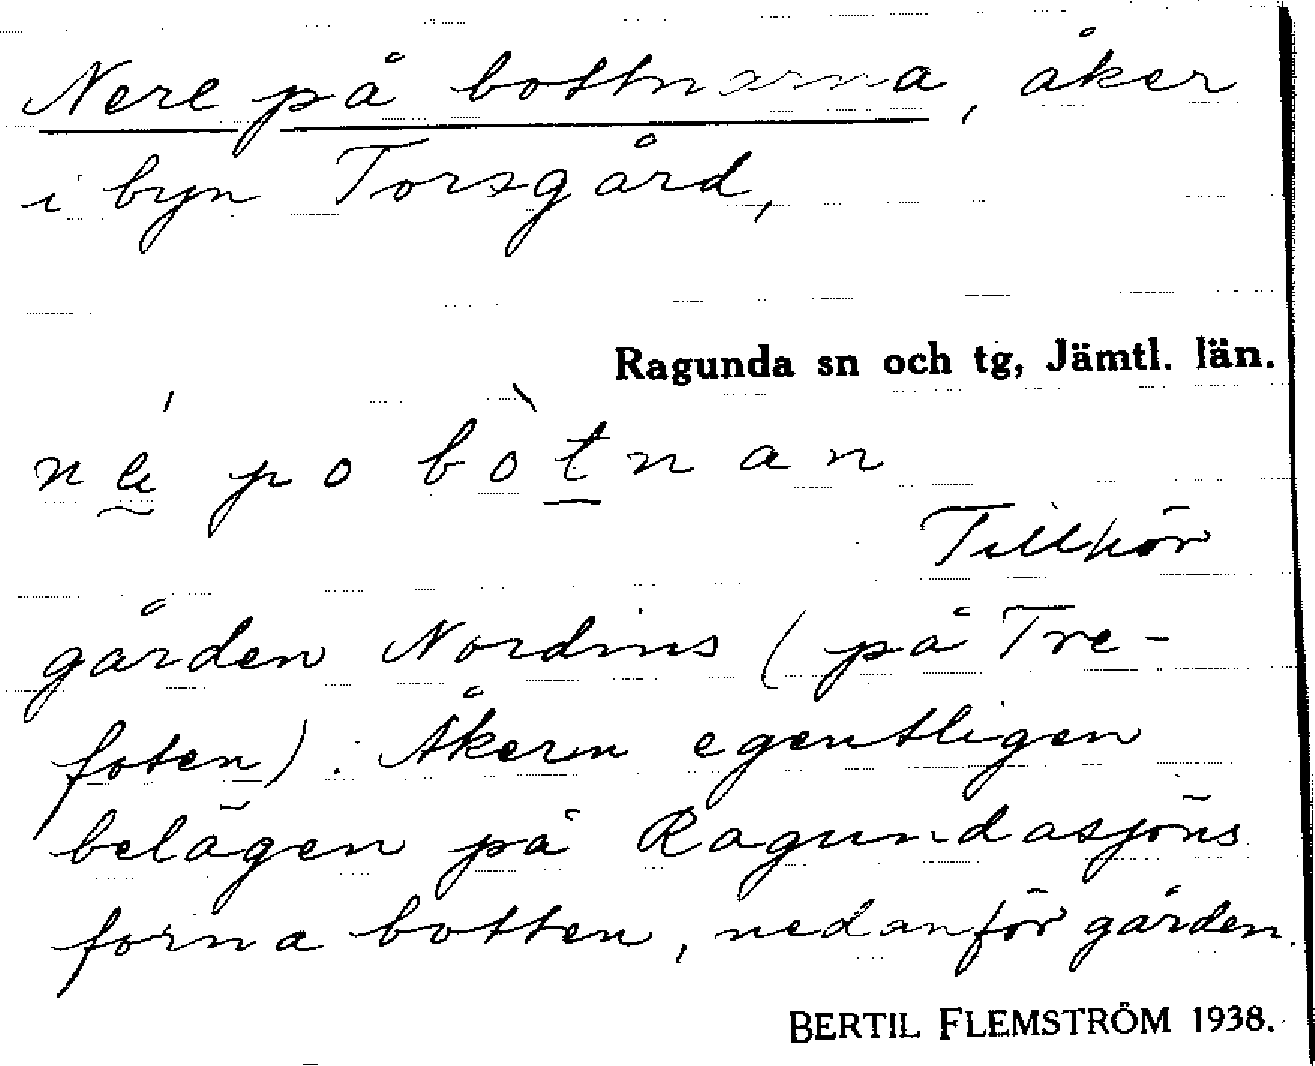 Nere på bottnarna, åker
i byn Torsgård,
Ragunda sn och tg, Jämtl. län.
po bòtnan
Tillhör
gården Nordins (på Tre-
foten). Åkern egentligen
belägen på Ragundasjöns
forna botten, nedanför gården.
BERTIL FLEMSTRÖM 1938.